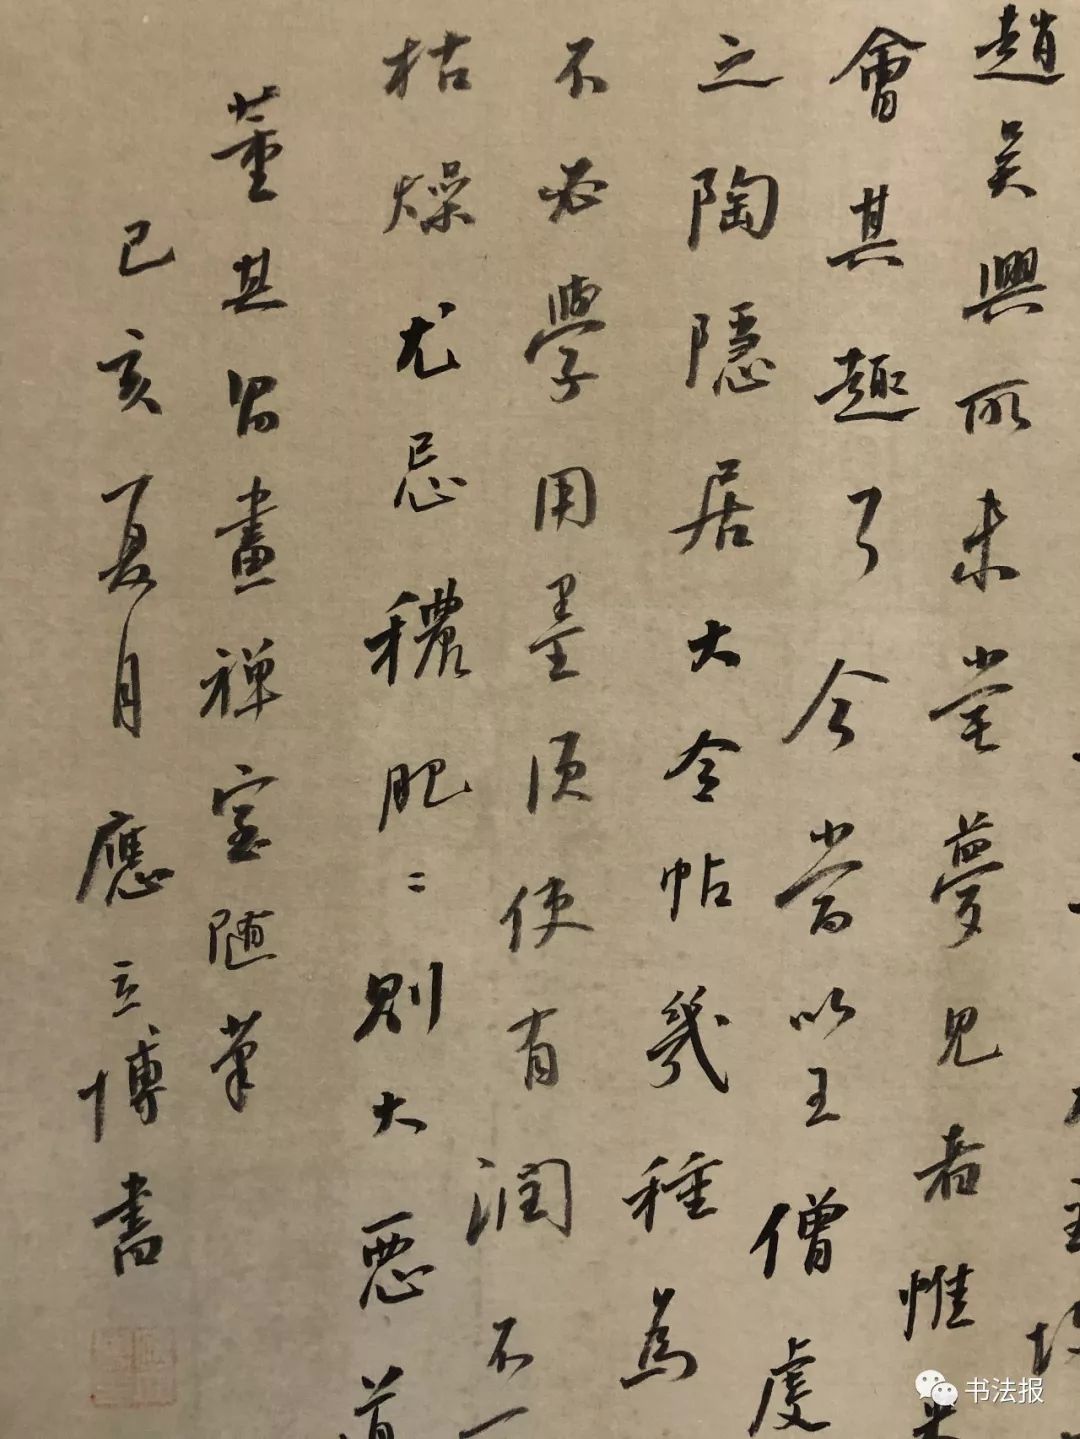 趙吳興所未嘗夢見者惟米
會其趣了今當以王僧虔
之陶隱居大令帖幾種為
不必學用墨須使有潤不
枯燥尤忌穠肥〻則大惡道
董其昌畫禪室隨筆
己亥夏月應立博書
书法报